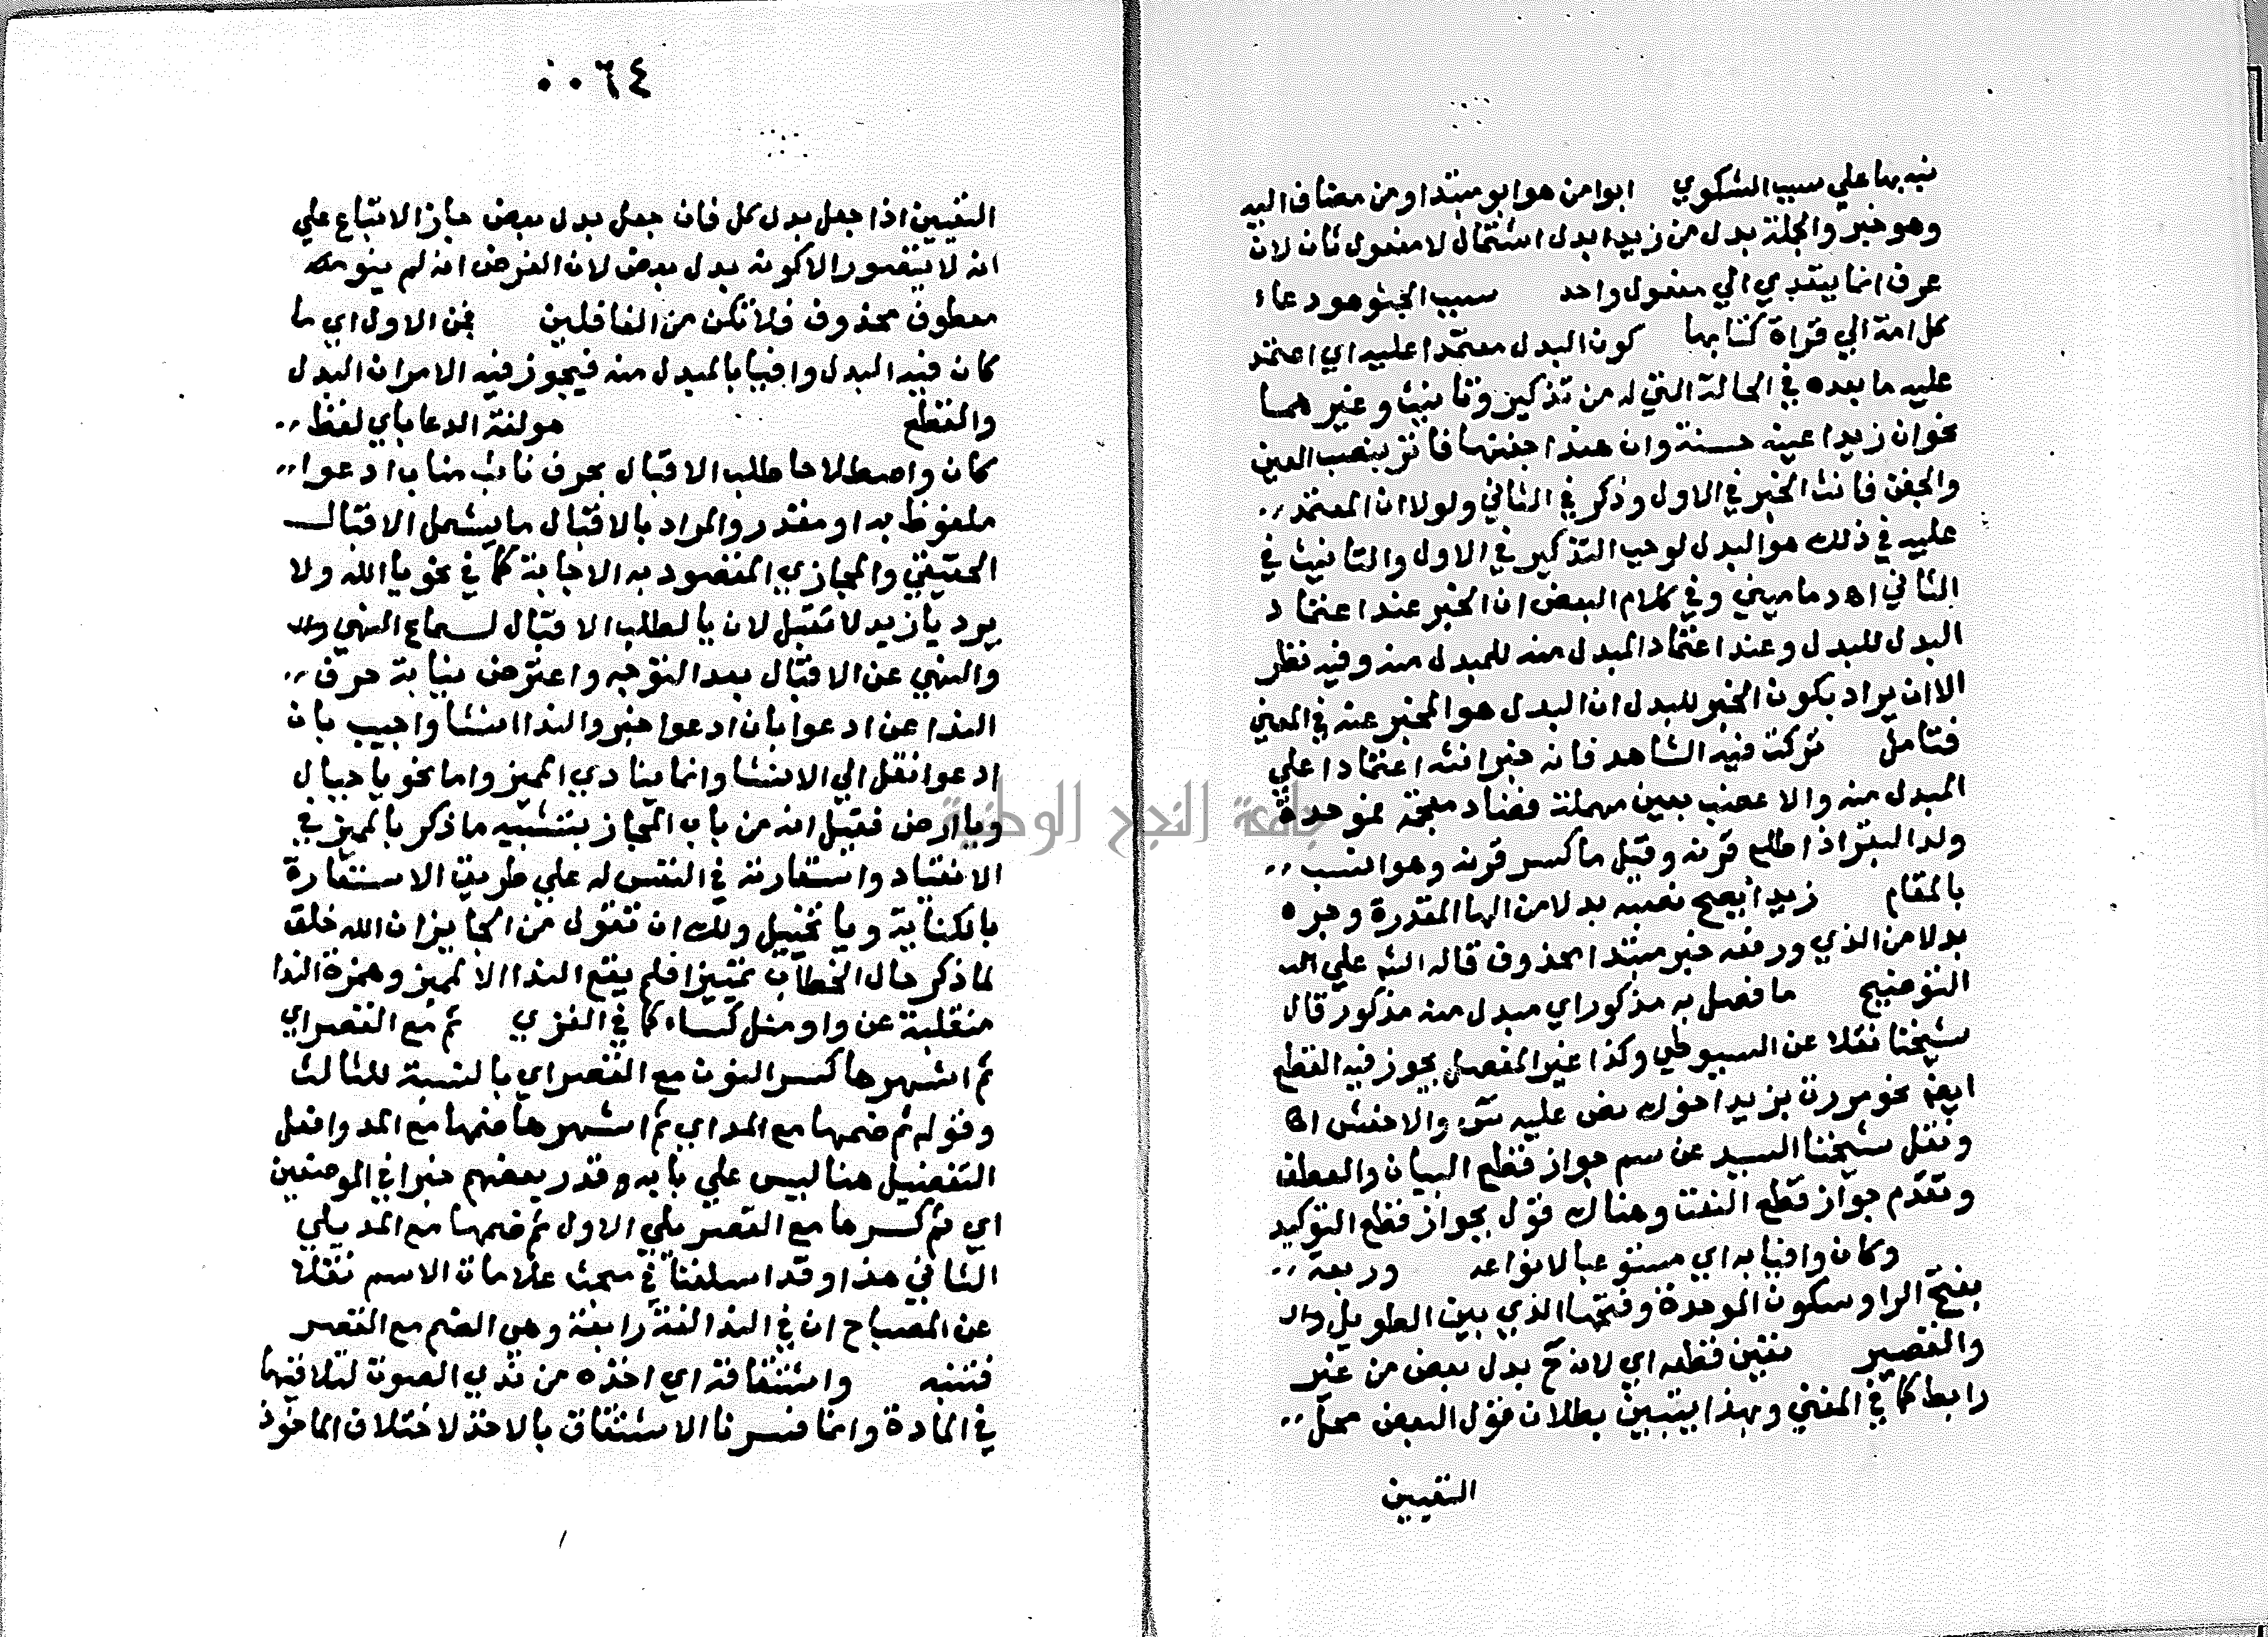 نبه بها علي سبب الشكوي ابوا من هو ابو مبتدا ومن مضاف اليه
وهو خبر والجملة بدل من زيدا بدل اشتمال لا مفعول ثان لان
عرف انما يتعدي الي مفعول واحد سبب الجثو هو دعاء
كل امة الي قراة كتابها كون البدل معتمدا عليه اي اعتمد
عليه ما بعده في الحالة التي له من تذكير وتانيث وغيرهما
نحو ان زيدا عينه حسنة وان هندا جفنها فاتر بنصب العين
والجفن فانث الخبر في الاول وذكر في الثاني ولولا ان المعتمد
عليه في ذلك هو البدل لوجب التذكير في الاول والتانيث في
الثاني اهـ دماميني وفي كلام البعض ان الخبر عند اعتماد
البدل للبدل وعند اعتماد المبدل منه للمبدل منه وفيه نظر
الا ان يراد بكون الخبر للبدل ان البدل هو المخبر عنه في المعني
فتامل تركت فيه الشاهد فانه خبر انثه اعتمادا علي
المبدل منه والاعضب بعين مهملة فضاد معجمة فموحدة
ولد البقر اذا طلع قرنه وقيل ما كسر قرنه وهو انسب
بالمقام زيدا يصح نصبه بدلا من الها المقدرة وجره
بدلا من الذي ورفعه خبر مبتدا محذوف قاله الشم علي
التوضيح ما فصل به مذكور اي مبدل منه مذكور قال
شيخنا نقلا عن السيوطي وكذا غير المفصل يجوز فيه القطع
ايضا نحو مررت بزيد اخوك نص عليه س والاخفش اهـ
ونقل شيخنا السيد عن سم جواز قطع البيان والعطف
وتقدم جواز قطع النعت وهناك قول بجواز قطع التوكيد
وكان وافيا به اي مستوعبا لانواعه وربعة
بفتح الرا وسكون الموحدة وفتحها الذي بين الطويل
والقصير تعين قطعه اي لانه ح بدل بعض من غير
رابط كما في المغني وبهذا يتبين بطلان قول البعض محل
التعيين
جامعة النجاح الوطنية
٠٠٦٤
التعيين اذا جعل بدل كل فان جعل بدل بعض جاز الاتباع علي
انه لا يتصور الا كونه بدل بعض لان الفرض انه لم ينو
معطوف محذوف فلا تكن من الغافلين فمن الاول اي ما
كان فيه البدل وافيا بالمبدل منه فيجوز فيه الامران البدل
والقطع هو لغة الدعا باي لفظ
كان واصطلاحا طلب الاقبال بحرف نائب مناب ادعوا
ملفوظ به او مقدر والمراد بالاقبال ما يشمل الاقبال
الحقيقي والمجازي المقصود به الاجابة كما في نحو يا الله ولا
يرد يا زيد لا تقبل لان يا لطلب الاقبال لسماع النهي
والنهي عن الاقبال بعد التوجه واعترض نيابة حرف
الندا عن ادعوا بان ادعوا خبر والندا انشا واجيب بان
ادعوا نقل الي الانشا وانما ينادي المميز واما نحو يا جبال
ويا ارض فقيل انه من باب المجاز بتشبيه ما ذكر بالمميز في
الانقياد واستعارته في النفس له علي طريق الاستعارة
بالكناية ويا تخييل ولك ان تقول من الجايز ان الله خلق
لما ذكر حال الخطاب تمييزا فلم يقع الندا الا لمميز وهمزة الندا
منقلبة عن واو مثل كساء كما في الغزي ثم مع القصر اي
ثم اشهرها كسر النون مع القصر اي بالنسبة للثالث
وقوله ثم ضمها مع المد اي ثم اشهرها ضمها مع المد وافعل
التفضيل هنا ليس علي بابه وقدر بعضهم خبرا في الموضعين
اي ثم كسرها مع القصر يلي الاول ثم ضمها مع المد يلي
الثاني هذا وقد اسلفنا في مبحث علامات الاسم نقلا
عن المصباح ان في الندا لغة رابعة وهي الضم مع القصر
فتنبه واشتقاقه اي اخذه من ندي الصوت لتلاقيهما
في المادة وانما فسرنا الاشتقاق بالاخذ لاختلاف الماخوذ